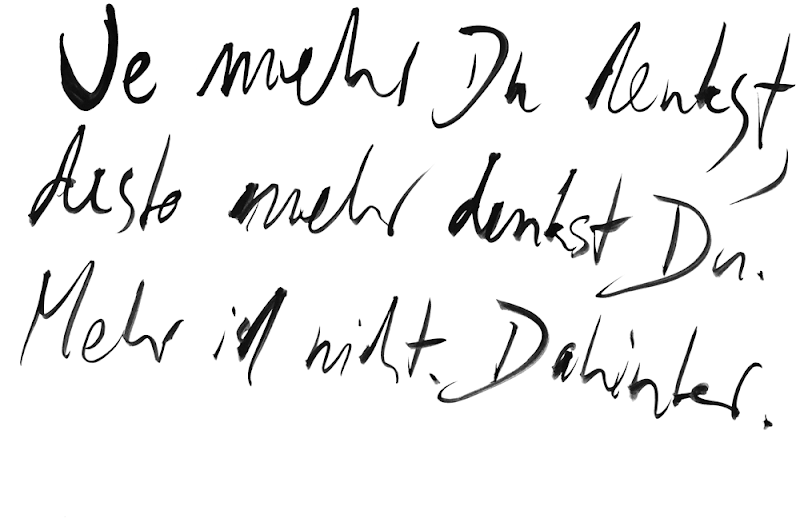 Je mehr Du denkst,
desto mehr denkst Du.
Mehr ist nicht. Dahinter.